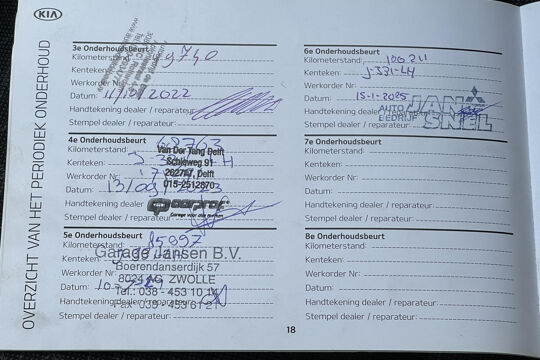 KIA
OVERZICHT VAN HET PERIODIEK ONDERHOUD
3e Onderhoudsbeurt
Kilometerstand: 49740
Kenteken:
Werkorder Nr
Datum: 11/10/2022
Handtekening dealer / reparateur:
Stempel dealer / reparateur:
4e Onderhoudsbeurt
Kilometerstand: 68763
Kenteken:
Werkorder Nr
Datum: 13/09/2023
Handtekening dealer
Stempel dealer / reparateur:
Van Der Tang Delft
Schieweg 91
Delft
015-2512870
Garage voor alle merken
5e Onderhoudsbeurt
Kilometerstand: 85997
Kenteken:
Werkorder Nr
Datum:
Handtekening dealer / reparateur:
Stempel dealer / reparateur:
Garage Jansen B.V.
Boerendanserdijk 57
8024 AG ZWOLLE
Tel.: 038 - 453 10 14
Fax: 038 - 453 81 21
6e Onderhoudsbeurt
Kilometerstand: 100211
Kenteken: J-331-LH
Werkorder Nr:
Datum: 15-1-2025
Handtekening dealer / reparateur:
Stempel dealer / reparateur:
AUTO
BEDRIJF
JAN
SNEL
7e Onderhoudsbeurt
Kilometerstand:
Kenteken:
Werkorder Nr:
Datum:
Handtekening dealer / reparateur:
Stempel dealer / reparateur:
8e Onderhoudsbeurt
Kilometerstand:
Kenteken:
Werkorder Nr:
Datum:
Handtekening dealer / reparateur:
Stempel dealer / reparateur:
18